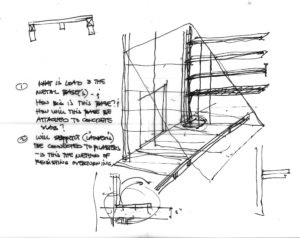 ① WHAT IS LOAD @ THE
METAL BASE(S) -
HOW BIG IS THIS BASE?
HOW WILL THIS BASE BE
ATTACHED TO CONCRETE
SLAB?
② WILL SEGMENT
BE CONNECTED TO PLANTERS
- IS THIS THE METHOD OF
RESISTING OVERTURNING